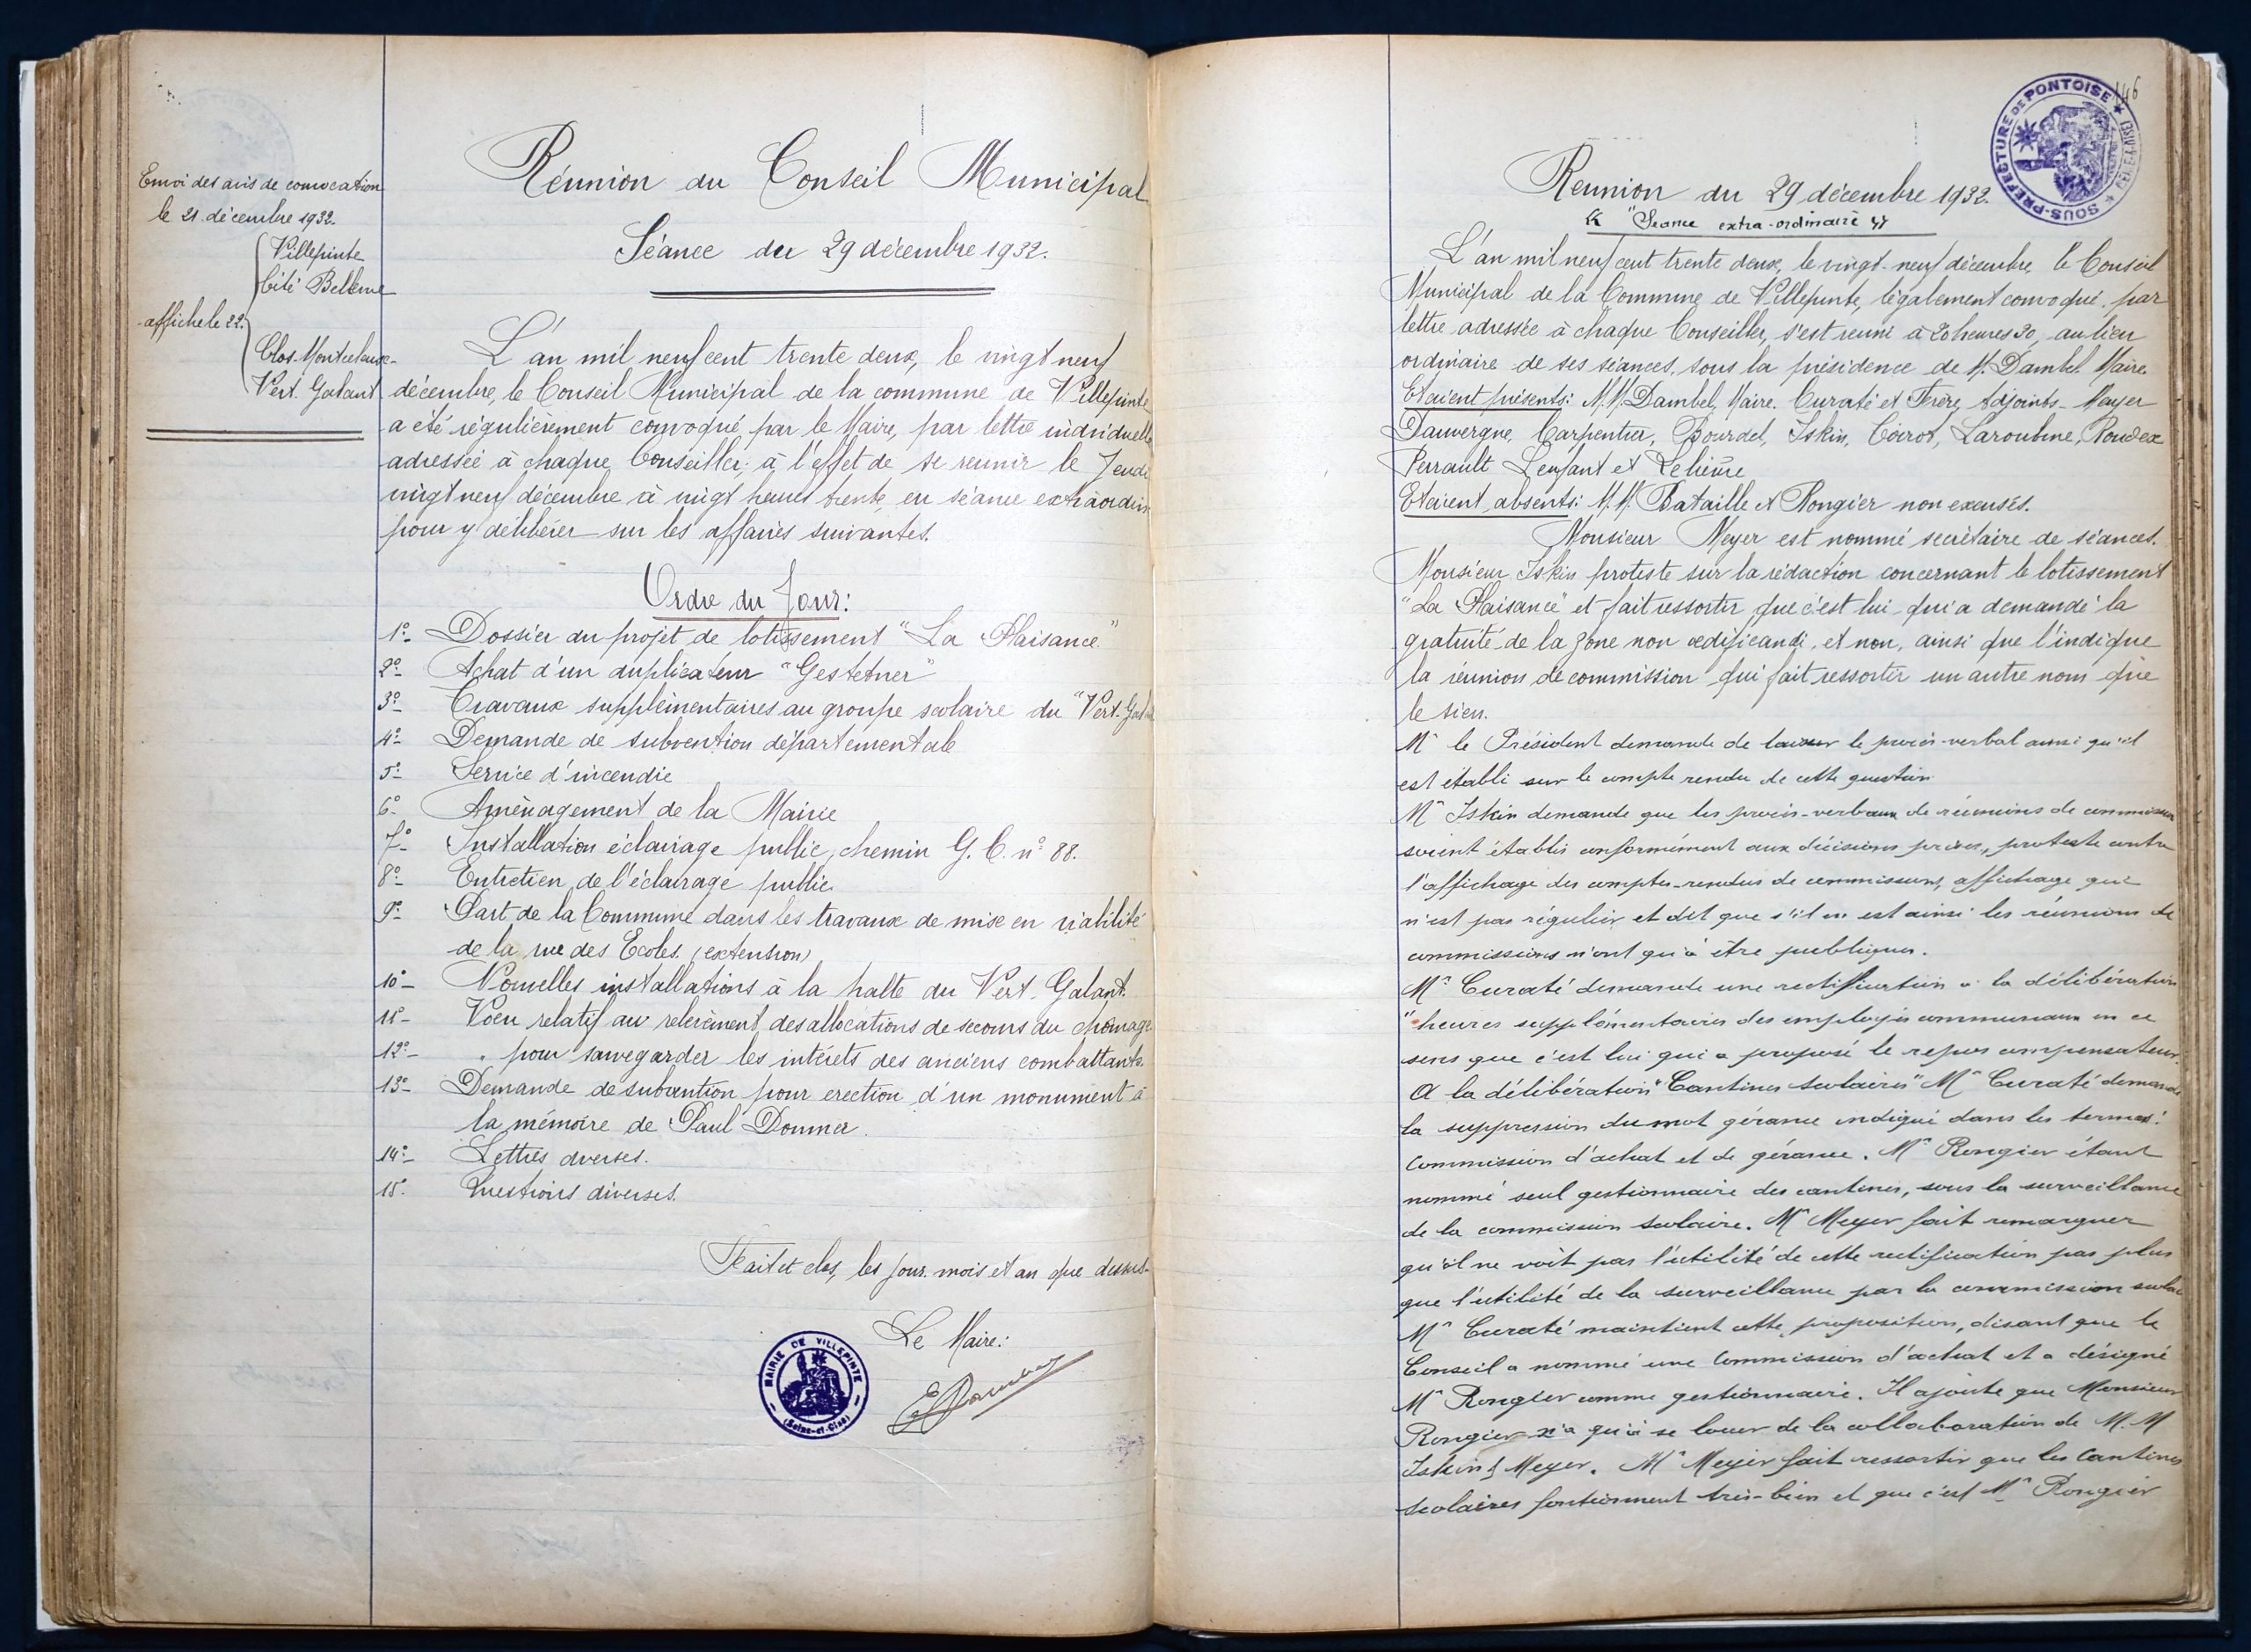 Envoi des avis de convocation
le 21 décembre 1932.
Villepinte
Cité Bellevue
affiché le 22.
Clos Montceleux
Vert-Galant
Réunion du Conseil Municipal
Séance du 29 décembre 1932.
L'an mil neuf cent trente deux, le vingt neuf
décembre, le Conseil Municipal de la commune de Villepinte
a été régulièrement convoqué par le Maire, par lettre individuelle
adressée à chaque Conseiller, à l'effet de se réunir le Jeudi
vingt neuf décembre à vingt heures trente, en séance extraordin
pour y délibérer sur les affaires suivantes.
Ordre du Jour:
1°- Dossier du projet de lotissement "La Plaisance"
2°- Achat d'un duplicateur "Gestetner"
3°- Travaux supplémentaires au groupe scolaire du "Vert-Galant
4°- Demande de subvention départementale
5°- Service d'incendie
6°- Aménagement de la Mairie
7°- Installation éclairage public, chemin G.C. n° 88.
8°- Entretien de l'éclairage public
9°- Part de la Commune dans les travaux de mise en viabilité
de la rue des Ecoles. (extension)
10°- Nouvelles installations à la halte du Vert-Galant.
11°- Voeu relatif au relèvement des allocations de secours du chômage
12°- " pour sauvegarder les intérêts des anciens combattants.
13°- Demande de subvention pour erection d'un monument à
la mémoire de Paul Doumer.
14°- Lettres diverses.
15°- Questions diverses.
Fait et clos, les jour, mois et an que dessus.
Le Maire:
MAIRIE DE VILLEPINTE
(Seine-et-Oise)
146
SOUS-PRÉFECTURE DE PONTOISE
Reunion du 29 décembre 1932.
"Seance extra-ordinaire"
L'an mil neuf cent trente deux, le vingt-neuf décembre, le Conseil
Municipal de la Commune de Villepinte, légalement convoqué par
lettre adressée à chaque Conseiller, s'est réuni à 20 heures 30, au lieu
ordinaire de ses séances, sous la présidence de M. Dambel Maire.
Etaient présents: M.M. Dambel, Maire. Curaté et Frère, Adjoints - Meyer
Dauvergne, Carpentier, Bourdel, Iskin, Laroubine, Roudex
Perrault Lenfant et Lelièvre
Etaient absents: M.M. Bataille et Rongier non excusés.
Monsieur Meyer est nommé secrétaire de séances.
Monsieur Iskin proteste sur la rédaction concernant le lotissement
"La Plaisance" et fait ressortir que c'est lui qui a demandé la
gratuité de la zone non oedificandi, et non, ainsi que l'indique
la réunion de commission qui fait ressortir un autre nom que
le sien.
Mr le Président demande de laisser le procès-verbal ainsi qu'il
est établi sur le compte rendu de cette question
Mr Iskin demande que les procès-verbaux de réunions de commission
soient établis conformément aux décisions prises, proteste contre
l'affichage des comptes-rendus de commissions, affichage qui
n'est pas régulier et dit que s'il en est ainsi les réunions de
commissions n'ont qu'à être publiques.
Mr Curaté demande une rectification à la délibération
"heures supplémentaires des employés communaux en ce
sens que c'est lui qui a proposé le repos compensateur.
A la délibération "Cantines scolaires" Mr Curaté demande
la suppression du mot gérance indiqué dans les termes:
Commission d'achat et de gérance. Mr Rongier étant
nommé seul gestionnaire des cantines, sous la surveillance
de la commission scolaire. Mr Meyer fait remarquer
qu'il ne voit pas l'utilité de cette rectification pas plus
que l'utilité de la surveillance par la commission scolai
Mr Curaté maintient cette proposition, disant que le
Conseil a nommé une Commission d'achat et a désigné
Mr Rongier comme gestionnaire. Il ajoute que Monsieur
Rongier n'a qu'à se louer de la collaboration de M.M
Iskin & Meyer. Mr Meyer fait ressortir que les Cantines
scolaires fonctionnent très-bien et que c'est Mr Rongier